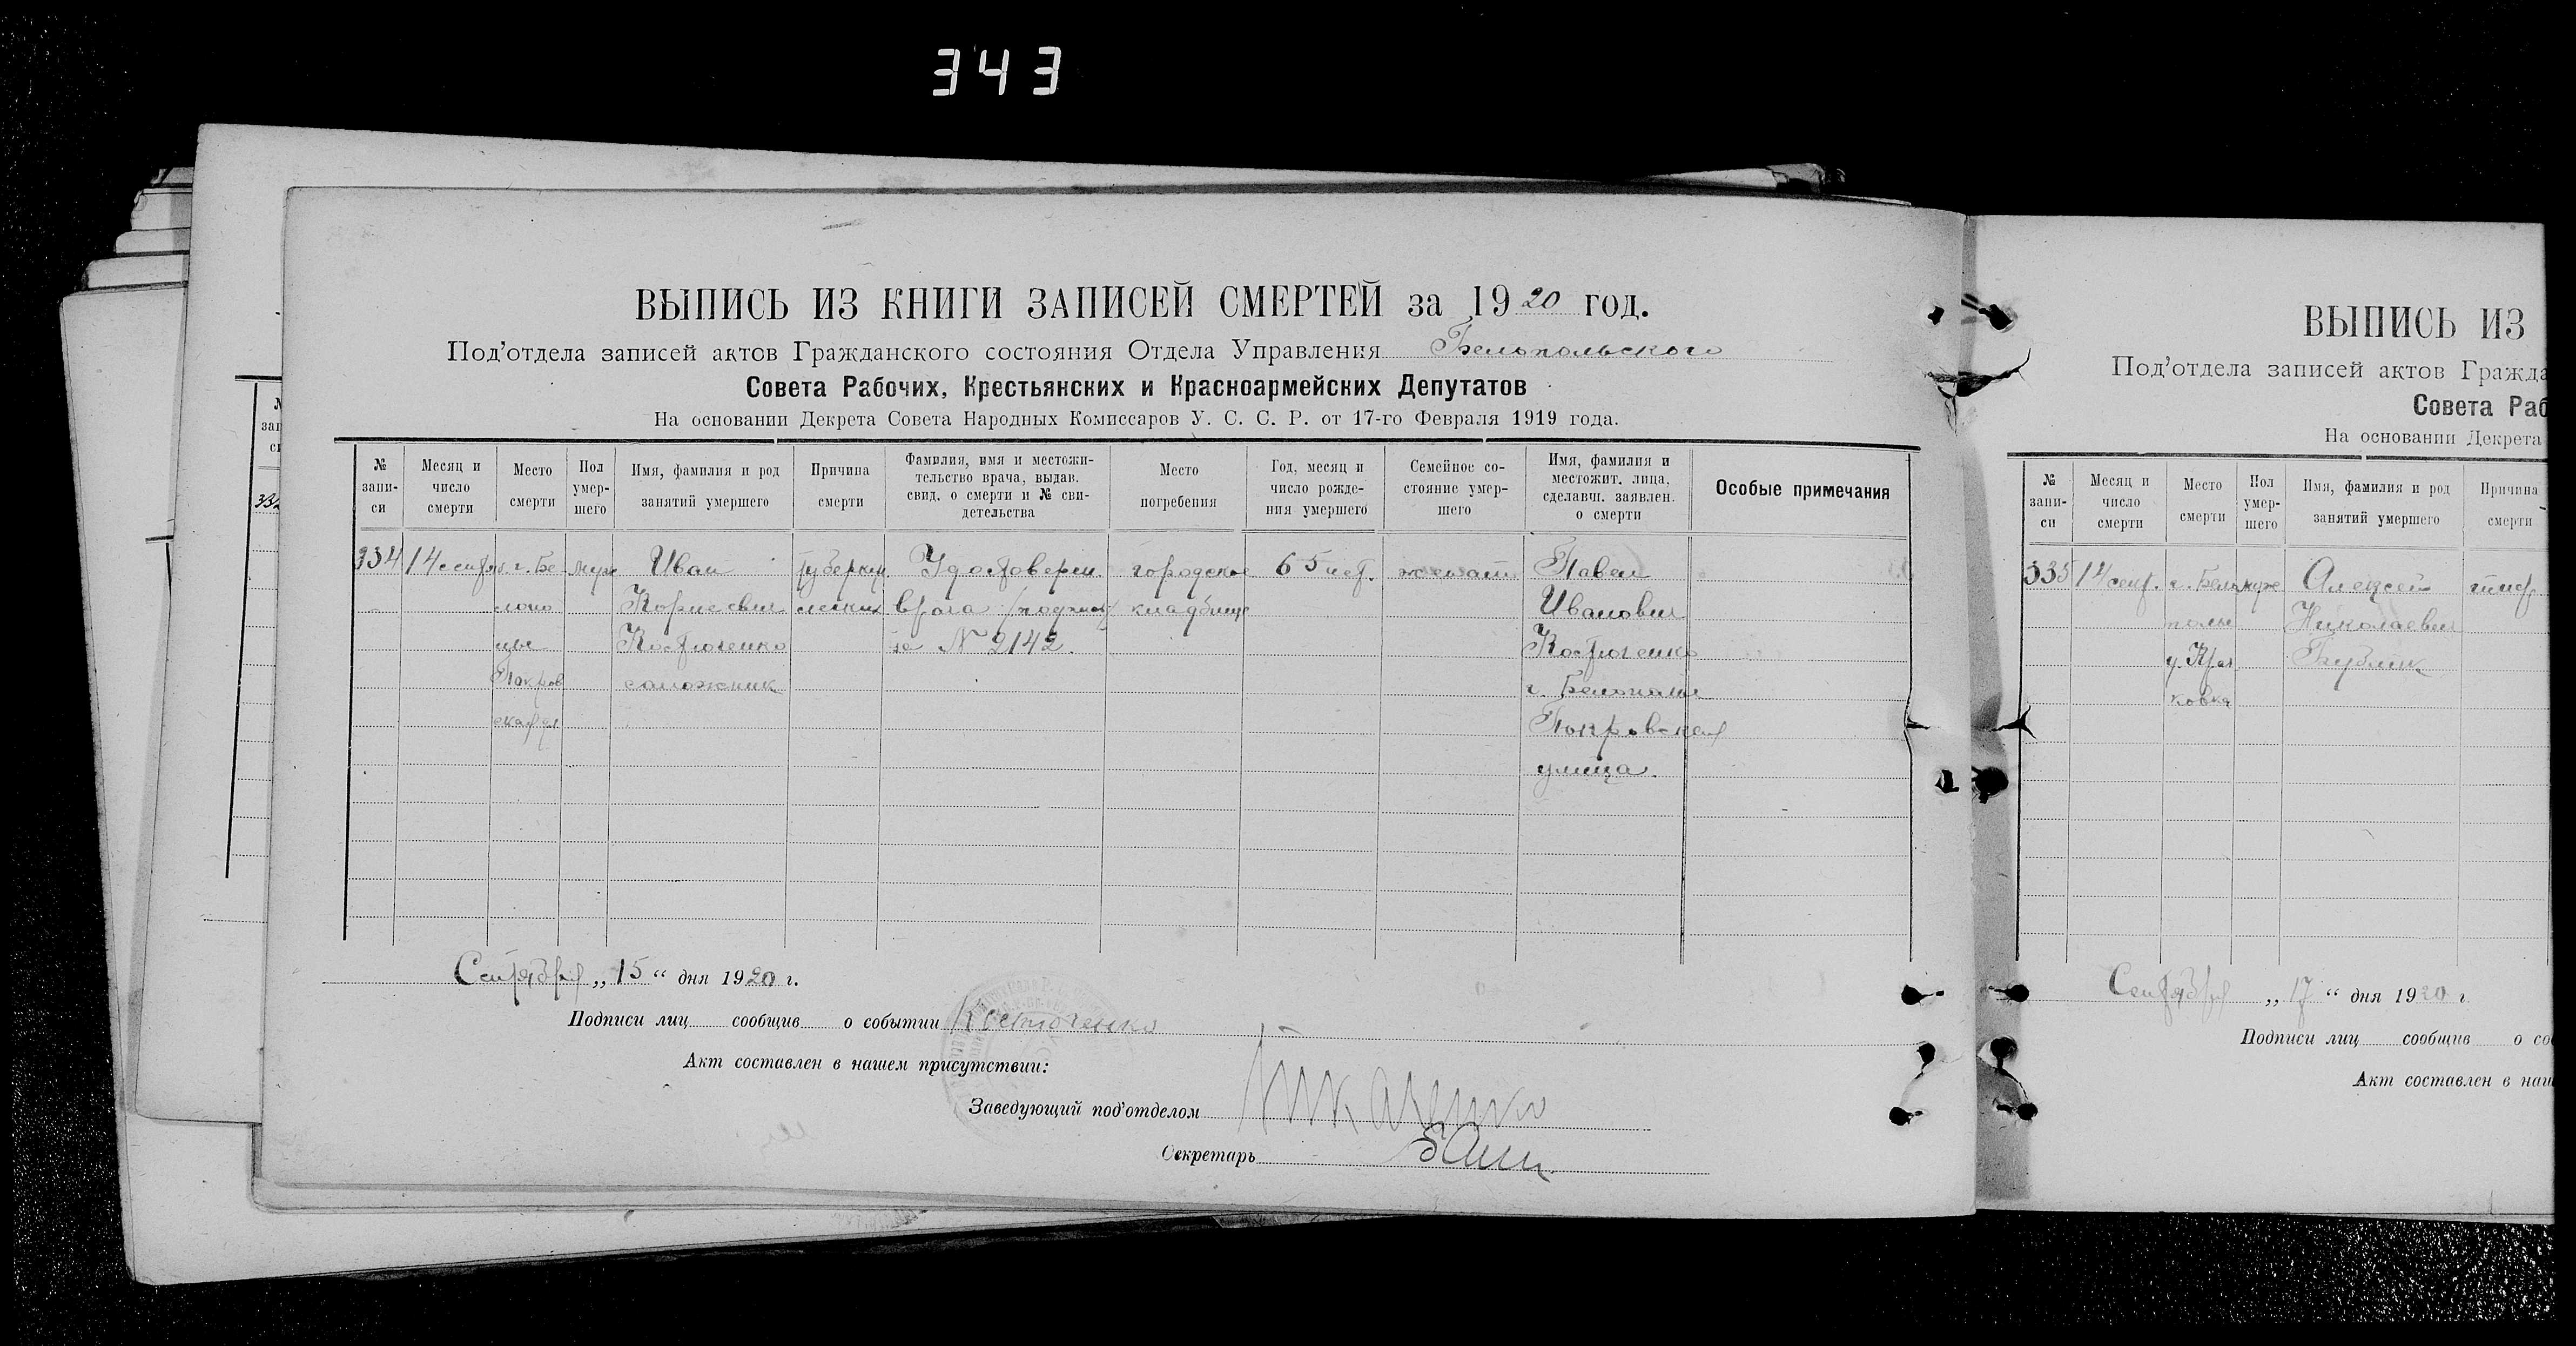 343
ВЫПИСЬ ИЗ КНИГИ ЗАПИСЕЙ СМЕРТЕЙ за 1920 год.
Под'отдела записей актов Гражданского состояния Отдела Управления Белопольского
Совета Рабочих, Крестьянских и Красноармейских Депутатов
На основании Декрета Совета Народных Комиссаров У. С. С. Р. от 17-го Февраля 1919 года.
№ запи-
си
Месяц и
число
смерти
Место
смерти
Пол
умер-
шего
Имя, фамилия и род
занятий умершего
Причина
смерти
Фамилия, имя и местожи-
тельство врача, выдав.
свид. о смерти и № сви-
детельства
Место
погребения
Год, месяц и
число рожде-
ния умершего
Семейное со-
стояние умер-
шего
Имя, фамилия и
местожит. лица,
сделавш. заявлен.
о смерти
Особые примечания
334
14 сентя
г. Бе
лопо
лье
Покров
ская ул
муж
Иван
Корнеевич
Костюченко
сапожник
туберкул.
легких
Удостоверен.
врача
№ 2142.
городское
кладбище
65 лет.
женат
Павел
Иванович
Костюченко
г. Белополье
Покровская
улица.
Сентября „15“ дня 1920 г.
Подписи лиц сообщив о событии Костюченко
Акт составлен в нашем присутствии:
Заведующий под'отделом
Секретарь
ВЫПИСЬ ИЗ
Под'отдела записей актов Гражда
Совета Раб
На основании Декрета
№
запи-
си
Месяц и
число
смерти
Место
смерти
Пол
умер-
шего
Имя, фамилия и род
занятий умершего
Причина
смерти
335
14 сент.
г. Бело
полье
ковка
муж
Алексей
Николаевич
тиф
Сентября „17“ дня 1920 г
Подписи лиц сообщив о со
Акт составлен в наш